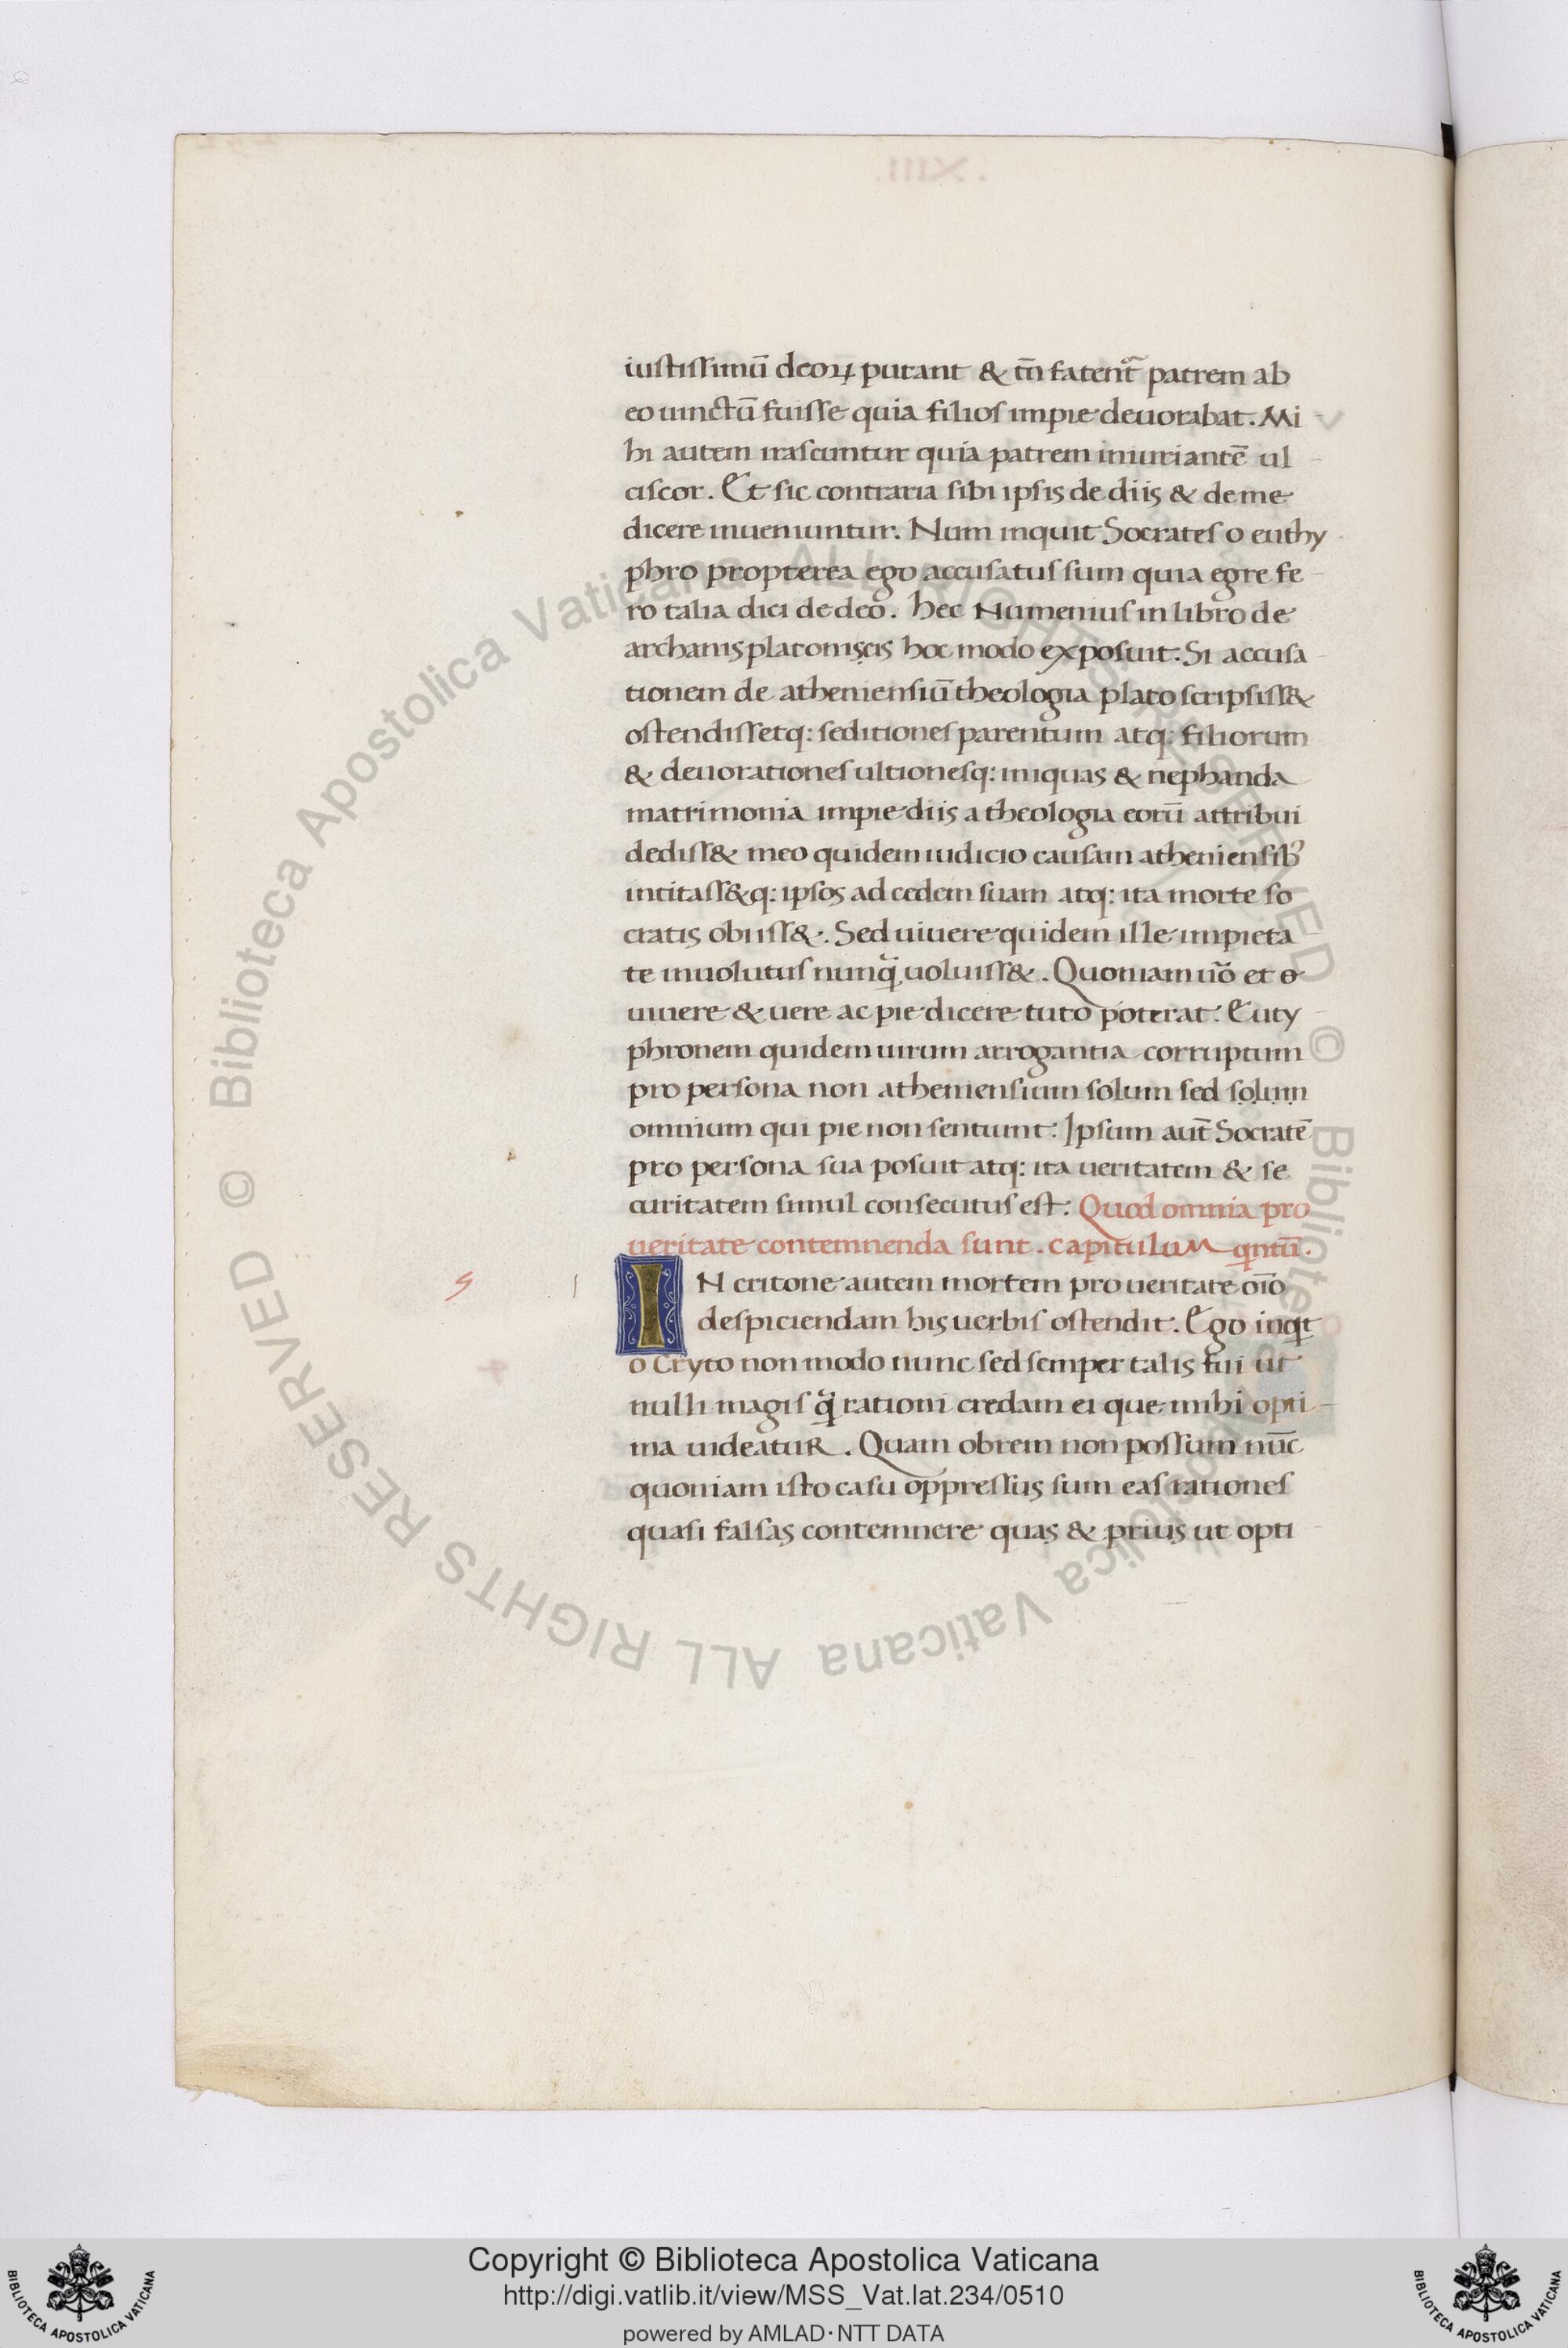 .XIII.
iustissimū deoꝝ putant & tn̄ fatent᷑ patrem ab
eo uinctū fuisse quia filios impie deuorabat. Mi
hi autem irascuntur quia patrem iniuriantē ul
ciscor. Et sic contraria sibi ipsis de diis & de me
dicere inueniuntur. Num inquit Socrates o euthy
phro propterea ego accusatus sum quia egre fe
ro talia dici de deo. hec Numenius in libro de
archanis platoniscis hoc modo exposuit. Si accusa
tionem de atheniensiū theologia plato scripsiss&
ostendissetq: seditiones parentum atq: filiorum
& deuorationes ultionesq: iniquas & nephanda
matrimonia impie diis a theologia eorū attribui
dediss& meo quidem iudicio causam atheniensib9
intitass&q: ipsos ad cedem suam atq: ita morte so
cratis obiiss&. Sed uiuere quidem ille impieta
te inuolutus nunq̃ uoluiss&. Quoniam uo᷒ et
uiuere & uere ac pie dicere tuto poterat. Euty
phronem quidem uirum arrogantia corruptum
pro persona non atheniensium solum sed solum
omnium qui pie non sentiunt. Ipsum aut̄ Socratē
pro persona sua posuit atq: ita ueritatem & se
curitatem simul consecutus est. Quod omnia pro
ueritate contemnenda sunt. capitulum qntū.
5 I IN critone autem mortem pro ueritate oīo
despiciendam his uerbis ostendit. Ego inqt
o Cryto non modo nunc sed semper talis fui ut
nulli magis q̃ rationi credam ei que mihi opti
ma uideatur. Quam obrem non possum nūc
quoniam isto casu oppressus sum eas rationes
quasi falsas contemnere quas & prius ut opti
© Biblioteca Apostolica Vaticana ALL RIGHTS RESERVED © Biblioteca Apostolica Vaticana ALL RIGHTS RESERVED
BIBLIOTECA APOSTOLICA VATICANA
Copyright © Biblioteca Apostolica Vaticana
http://digi.vatlib.it/view/MSS_Vat.lat.234/0510
powered by AMLAD·NTT DATA
BIBLIOTECA APOSTOLICA VATICANA